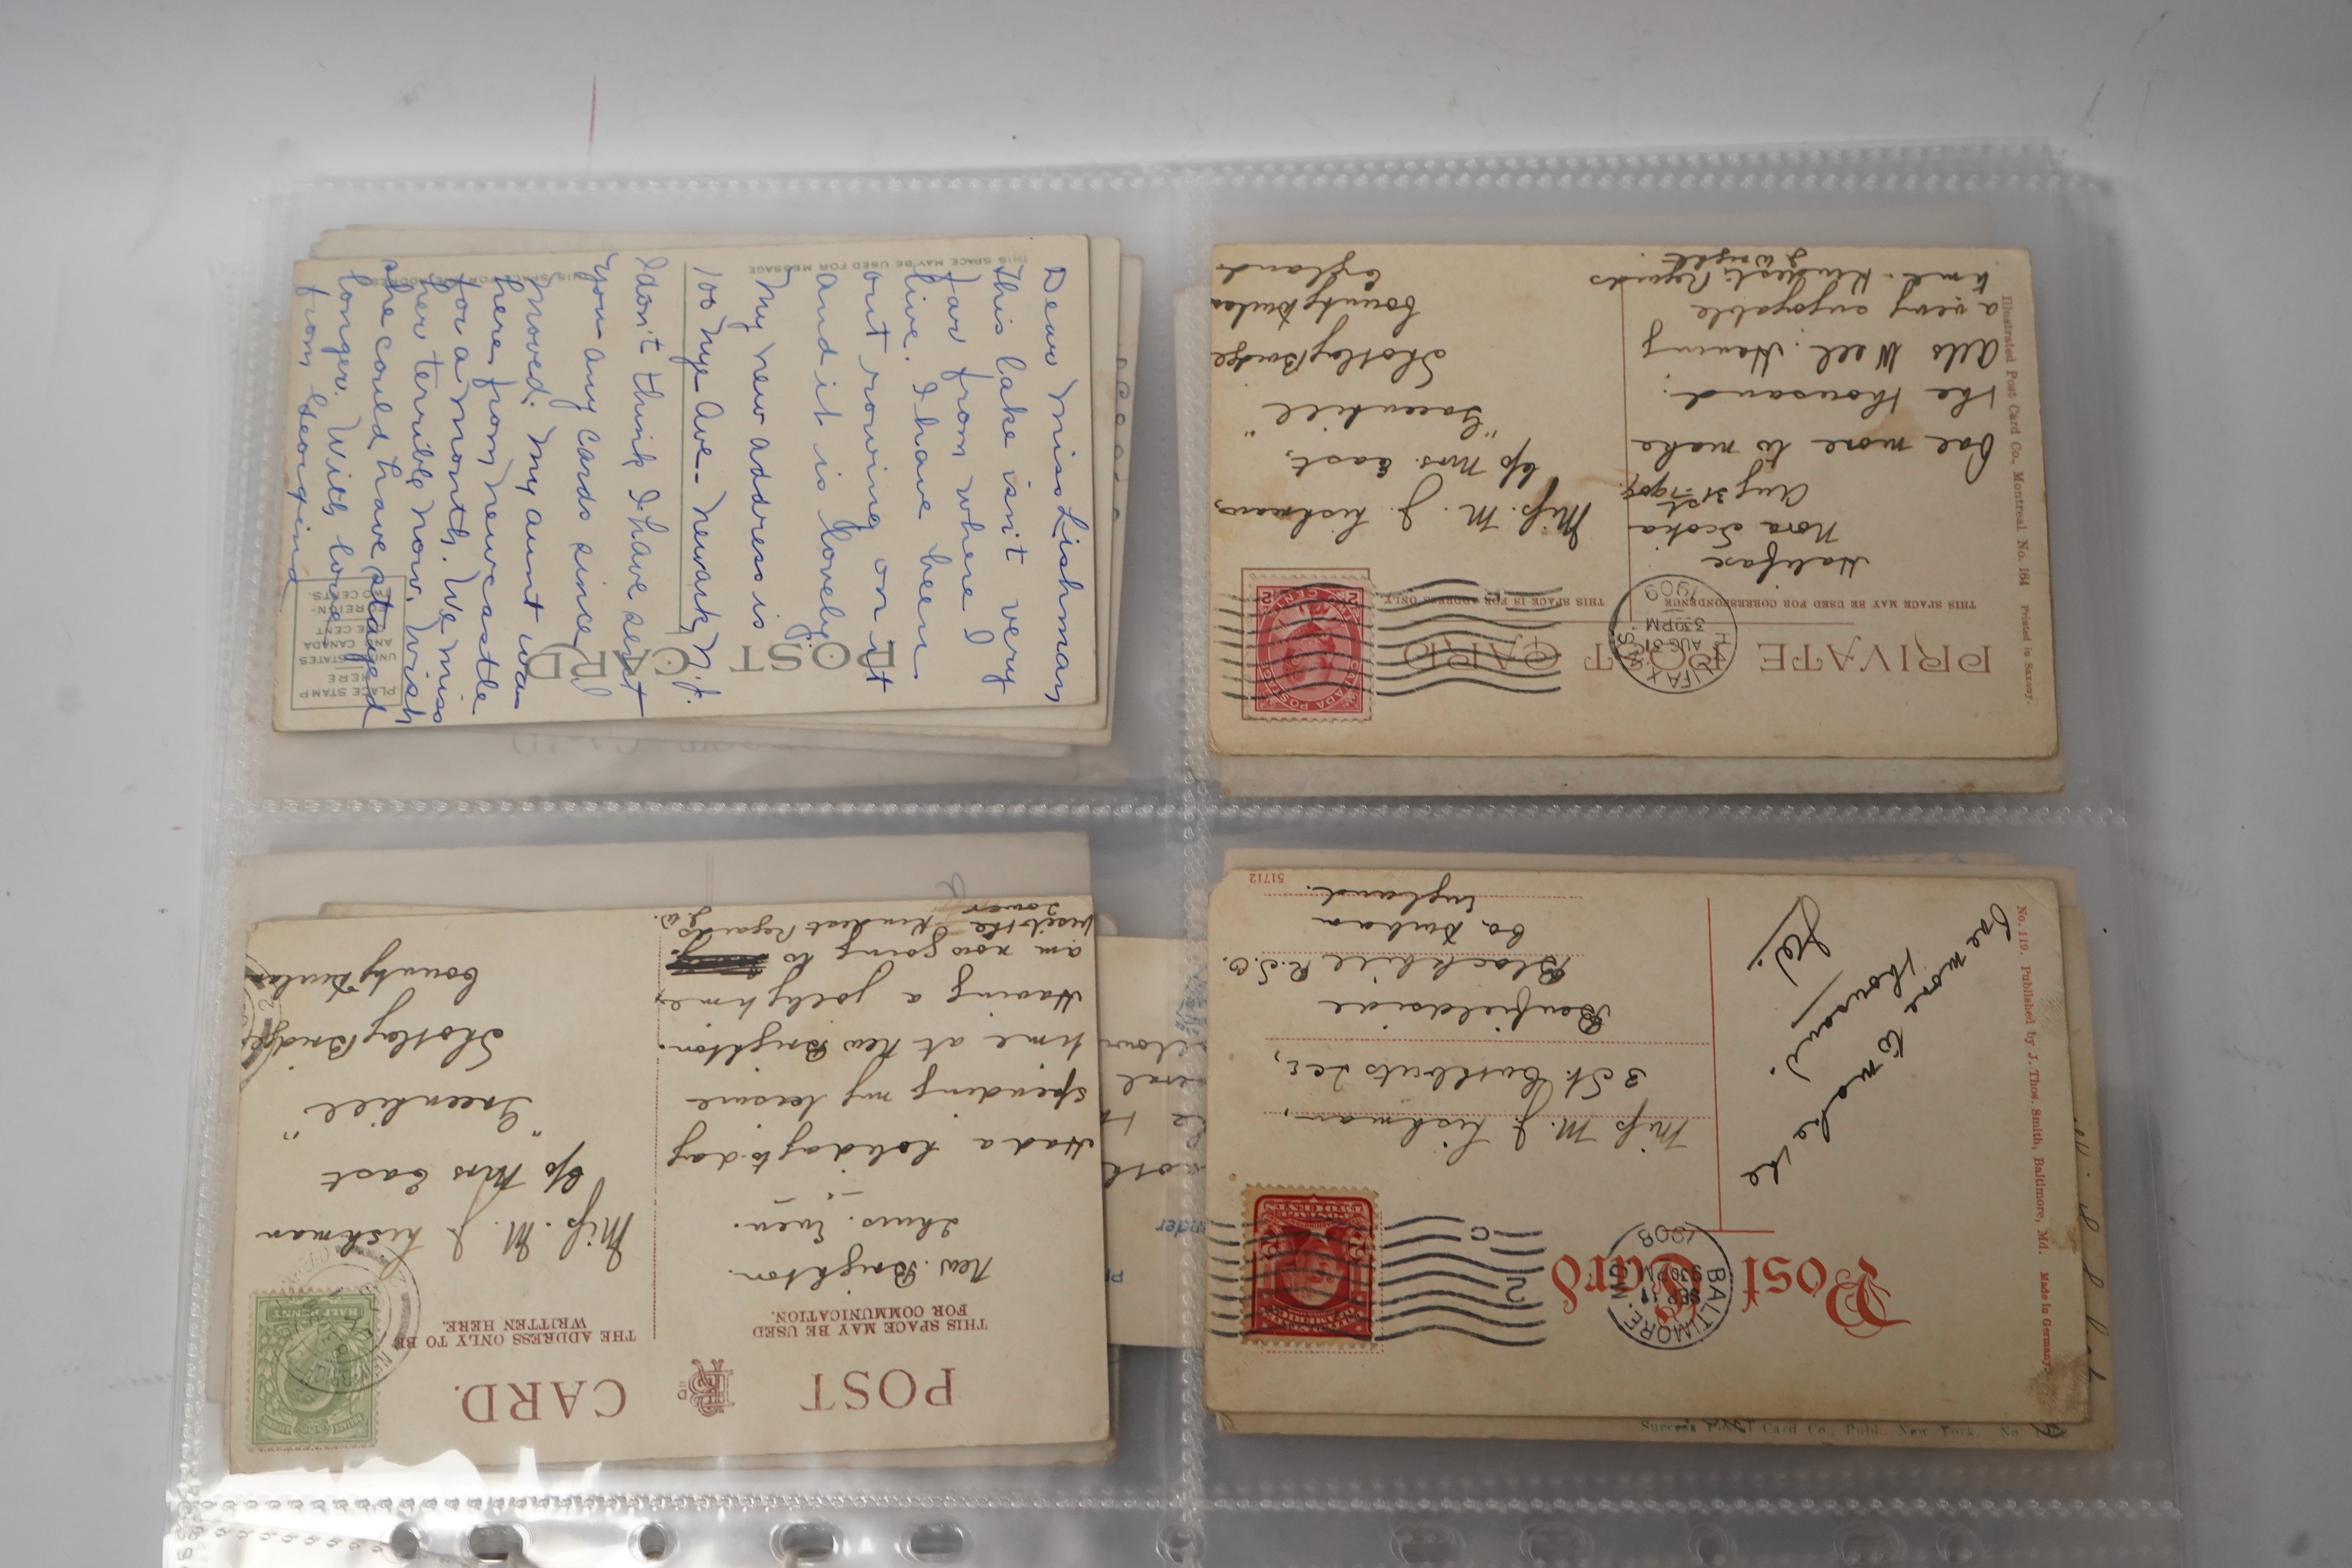 THIS SPACE MAY BE USED FOR MESSAGE
POST CARD
PLACE STAMP
HERE
UNITED STATES
AND CANADA
ONE CENT
FOREIGN-
TWO CENTS.
Dear Miss Lishman
This lake isn't very
far from where I
live. I have been
out rowing on it
and it is lovely.
My new address is
100 Nye Ave - Newark N.J.
I don't think I have sent
you any cards since I
moved. My aunt was
here from Newcastle
for a month. We miss
her terribly now. Wish
she could have stayed
longer. With love
from Georgina
PRIVATE POST CARD
THIS SPACE MAY BE USED FOR CORRESPONDENCE
THIS SPACE IS FOR ADDRESS ONLY
HALIFAX
AUG 31
3 30 PM
1909
CANADA POSTAGE
2 CENTS 2
Halifax
Nova Scotia
Aug 31st 1909.
One more to make
the thousand.
All's Well. Having
a very enjoyable
time. Kindest Regards
J Wright.
Miss. M. J. Lishman,
c/o Mrs. East,
"Greenhill"
Shotley Bridge
County Durham
England
Illustrated Post Card Co., Montreal. No. 164 Printed in Saxony.
POST CARD.
THIS SPACE MAY BE USED
FOR COMMUNICATION.
THE ADDRESS ONLY TO BE
WRITTEN HERE.
HALFPENNY
New. Brighton.
Thurs. Even.
Had a holiday to-day
spending my leisure
time at New Brighton.
Having a jolly time,
am now going to
visit the Tower
Kindest Regards
J.W.
Miss. M J Lishman
c/o Mrs East
"Greenhill"
Shotley Bridge
County Durham
Post Card
BALTIMORE, MD.
SEP 11
9 30 PM
1908
2 C
One more to make the
thousand.
Miss M. J Lishman,
3 St. Cuthberts Ter,
Benfieldside
Blackhill R.S.O.
Co. Durham
England.
51712
No. 119. Published by J. Thos. Smith, Baltimore, Md. Made in Germany.
Success Postal Card Co., Publ. New York. No.